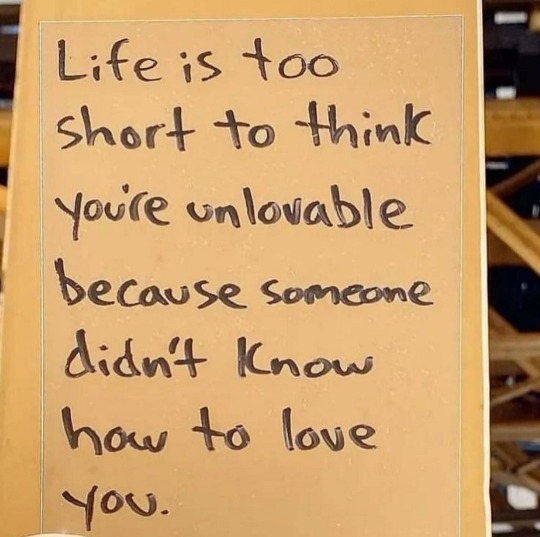 Life is too
short to think
you're unlovable
because someone
didn't know
how to love
you.